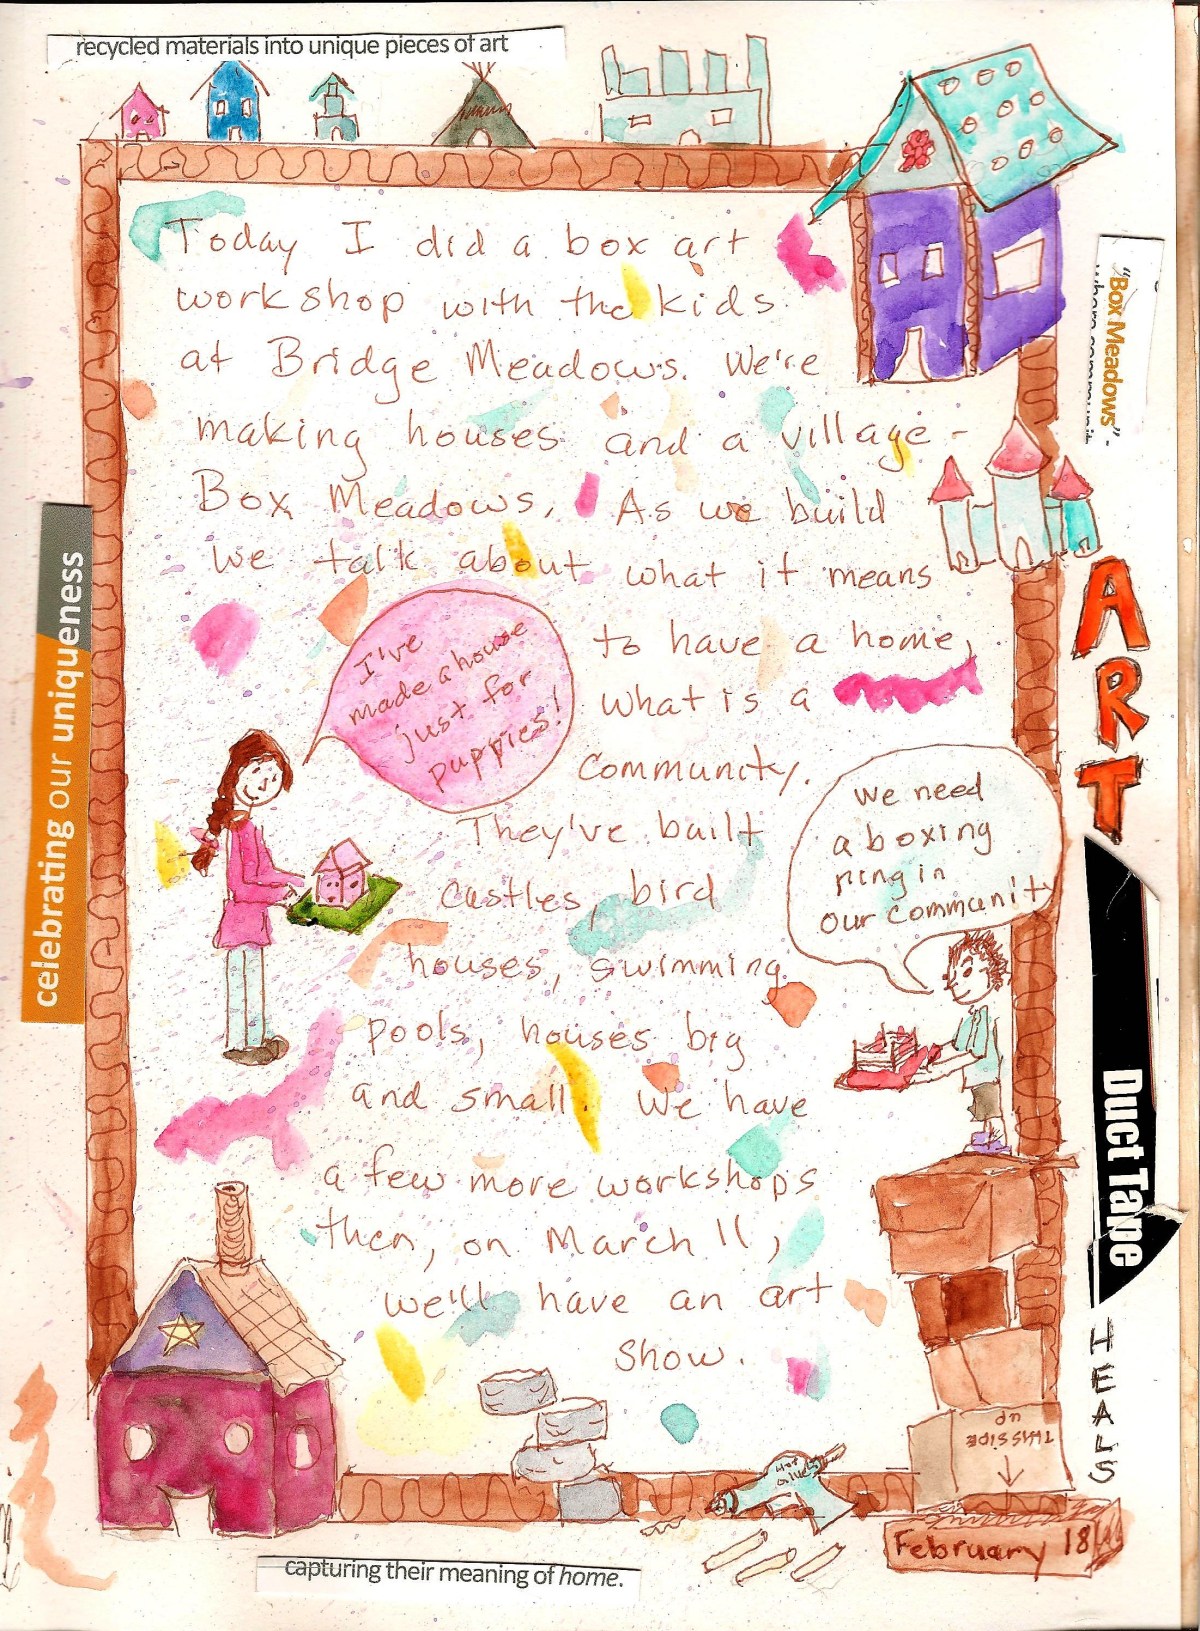 recycled materials into unique pieces of art
Today I did a box art
workshop with the kids
at Bridge Meadows. We're
making houses and a village -
Box Meadows. As we build
we talk about what it means
to have a home,
what is a
community.
They've built
castles, bird
houses, swimming
pools, houses big
and small. We have
a few more workshops
then, on March 11,
we'll have an art
show.
I've
made a house
just for
puppies!
We need
a boxing
ring in
our community
celebrating our uniqueness
"Box Meadows" -
ART
Duct Tape
HEALS
THIS SIDE
UP
Hot
February 18
capturing their meaning of home.